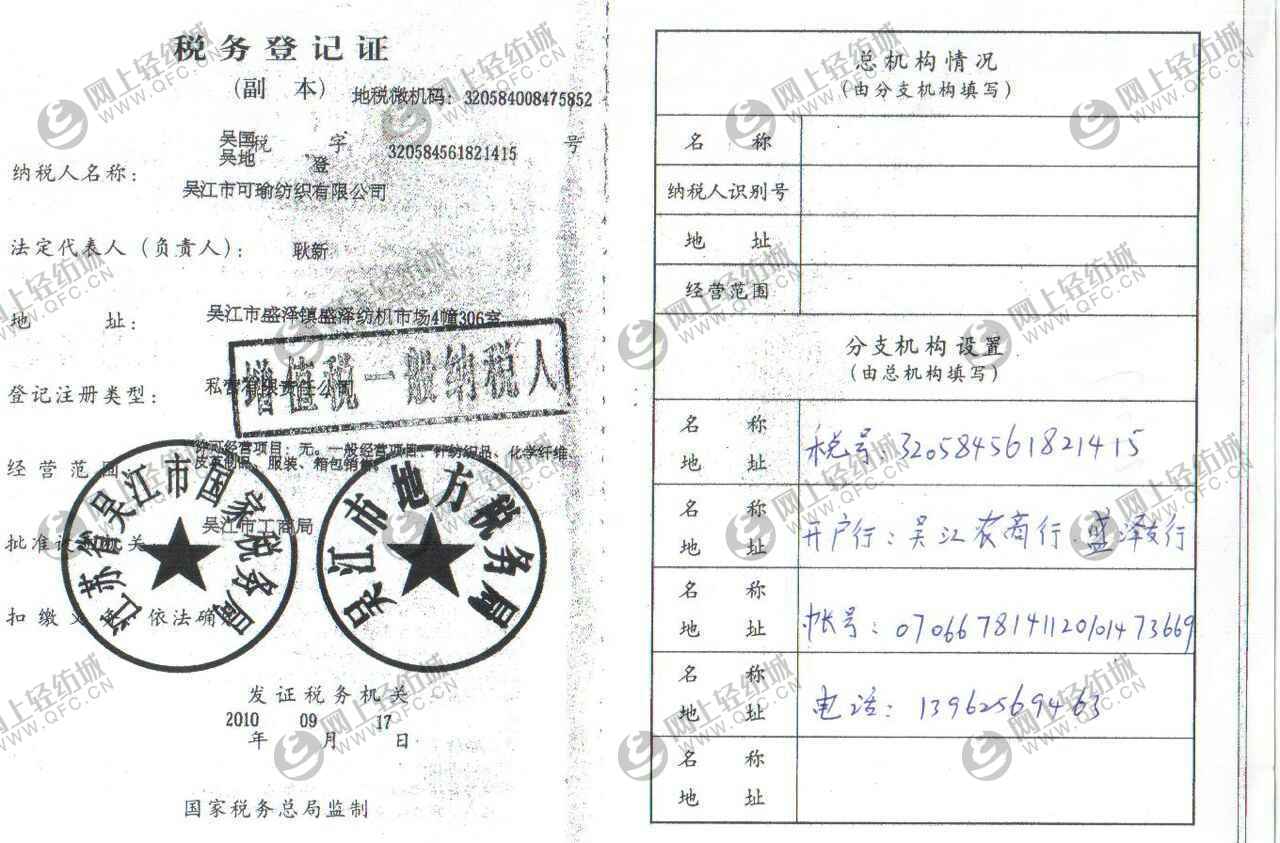 税务登记证
(副 本)
地税微机码：320584008475852
吴国
吴地
税 字 320584561821415 号
登
纳税人名称：
吴江市可瑜纺织有限公司
法定代表人（负责人）： 耿新
地 址： 吴江市盛泽镇盛泽纺机市场4幢306室
增值税一般纳税人
登记注册类型： 私营有限责任公司
许可经营项目：无。一般经营项目：针纺织品、化学纤维、
经营范围 皮革制品、服装、箱包销售。
吴江市工商局
批准设立机关
扣缴义务 依法确
江苏省吴江市国家税务局
吴江市地方税务局
发证税务机关
2010 09 17
年 月 日
国家税务总局监制
总机构情况
(由分支机构填写)
名 称
纳税人识别号
地 址
经营范围
分支机构设置
(由总机构填写)
名 称
地 址
税号：320584561821415
名 称
地 址
开户行：吴江农商行 盛泽支行
名 称
地 址
帐号：0706678141120101473669
名 称
地 址
电话：13962569463
名 称
地 址
网上轻纺城
WWW.QFC.CN